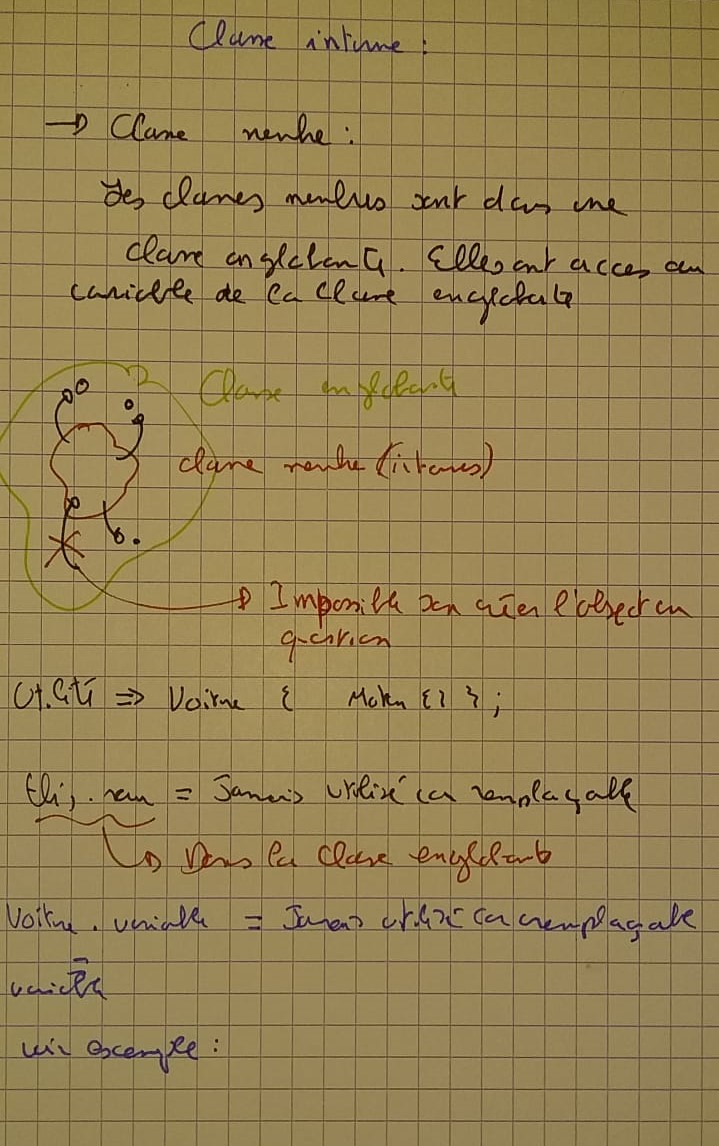 Classe interne :
→ Classe membre :
Les classes membres sont dans une
classe englobante. Elles ont acces au
variable de la classe englobante
Classe englobante
classe membre (internes)
→ Impossible sans créer l'object en
question
Utilité => Voiture { Moteur {} } ;
this. = Jamais utilisé car remplaçable
↳ Dans la classe englobante
Voiture . variable = Jamais utilisé car remplaçable
variable
voir exemple :